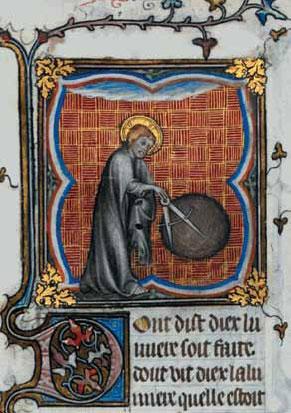 DOnt dist diex lu
miere soit faite.
dont vit diex la lu
miere quelle estoit